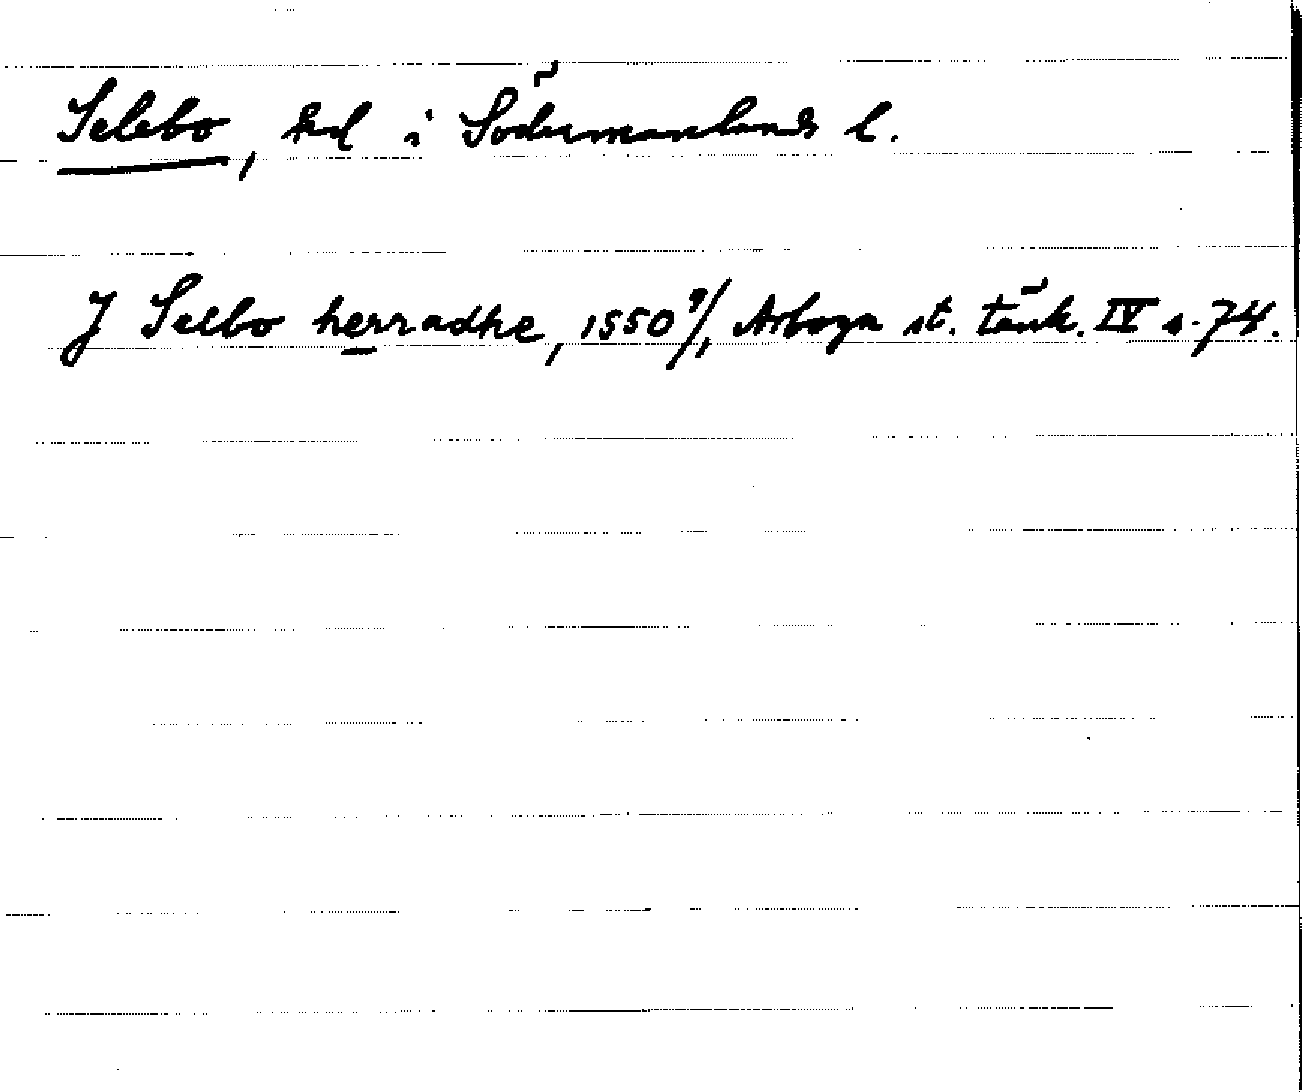 Selebo, hd i Södermanlands l.
J Selbo herradhe, 1550 9/, Arboga st. tänk. IV s. 74.